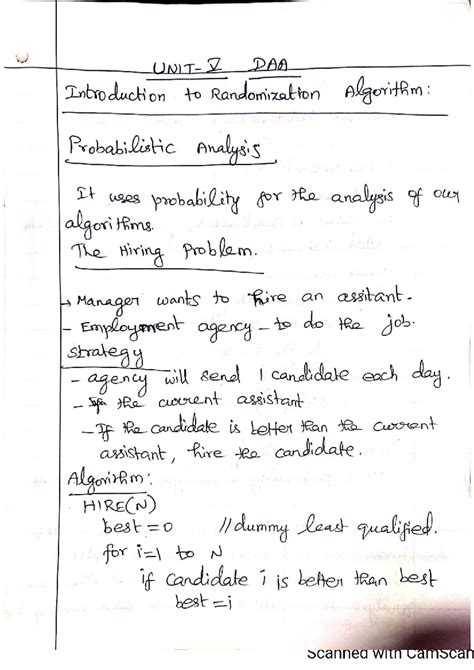 UNIT-V DAA
Introduction to Randomization Algorithm:
Probabilistic Analysis
It uses probability for the analysis of our
algorithms.
The Hiring Problem.
→ Manager wants to hire an assitant.
- Employment agency - to do the job.
strategy
- agency will send 1 candidate each day.
- the current assistant
- If the candidate is better than the current
assistant, hire the candidate.
Algorithm:
HIRE(N)
best = 0 //dummy least qualified.
for i=1 to N
if candidate i is better than best
best = i
Scanned with CamScan